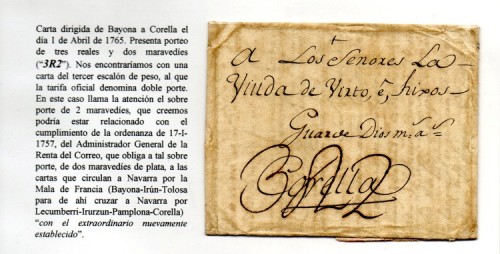 Carta dirigida de Bayona a Corella el
día 1 de Abril de 1765. Presenta porteo
de tres reales y dos maravedíes
("3R2"). Nos encontraríamos con una
carta del tercer escalón de peso, al que
la tarifa oficial denomina doble porte.
En este caso llama la atención el sobre
porte de 2 maravedíes, que creemos
podría estar relacionado con el
cumplimiento de la ordenanza de 17-I-
1757, del Administrador General de la
Renta del Correo, que obliga a tal sobre
porte, de dos maravedíes de plata, a las
cartas que circulan a Navarra por la
Mala de Francia (Bayona-Irún-Tolosa
para de ahí cruzar a Navarra por
Lecumberri-Irurzun-Pamplona-Corella)
"con el extraordinario nuevamente
establecido".
A Los Señores La
Viuda de Virto, é, hixos
Guarde Dios m.s a.s
Corella